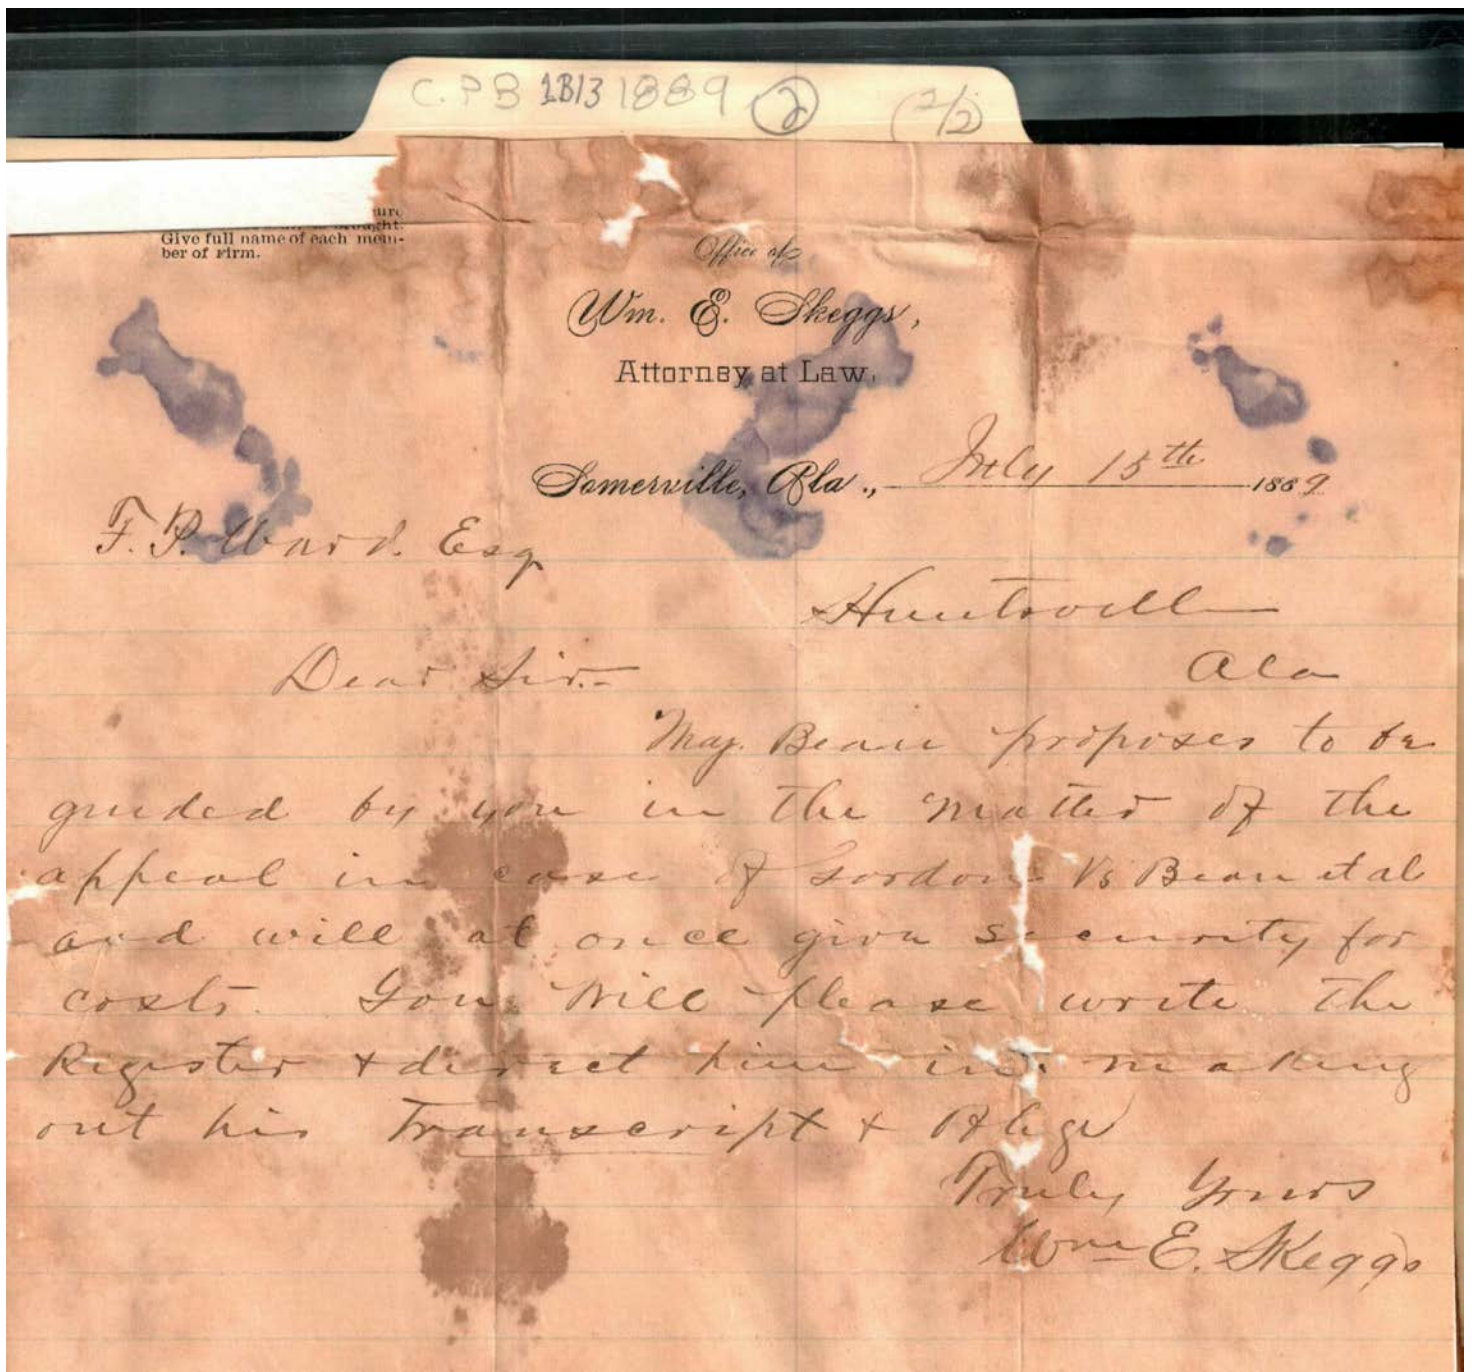 C.P.B 1B13 1889 2 (2/2)
ought.
Give full name of each mem-
ber of Firm.
Office of
Wm. E. Skeggs,
Attorney at Law,
Somerville, Ala., July 15th 1889
F. P. Ward. Esq
Huntsville
Ala
Dear Sir.-
Maj. Bean proposes to be
guided by you in the matter of the
appeal in case of Gordon Vs Bean et al
and will at once give security for
costs. You will please write the
Register & direct him in making
out his Transcript & Oblige
Truly Yours
Wm E. Skeggs